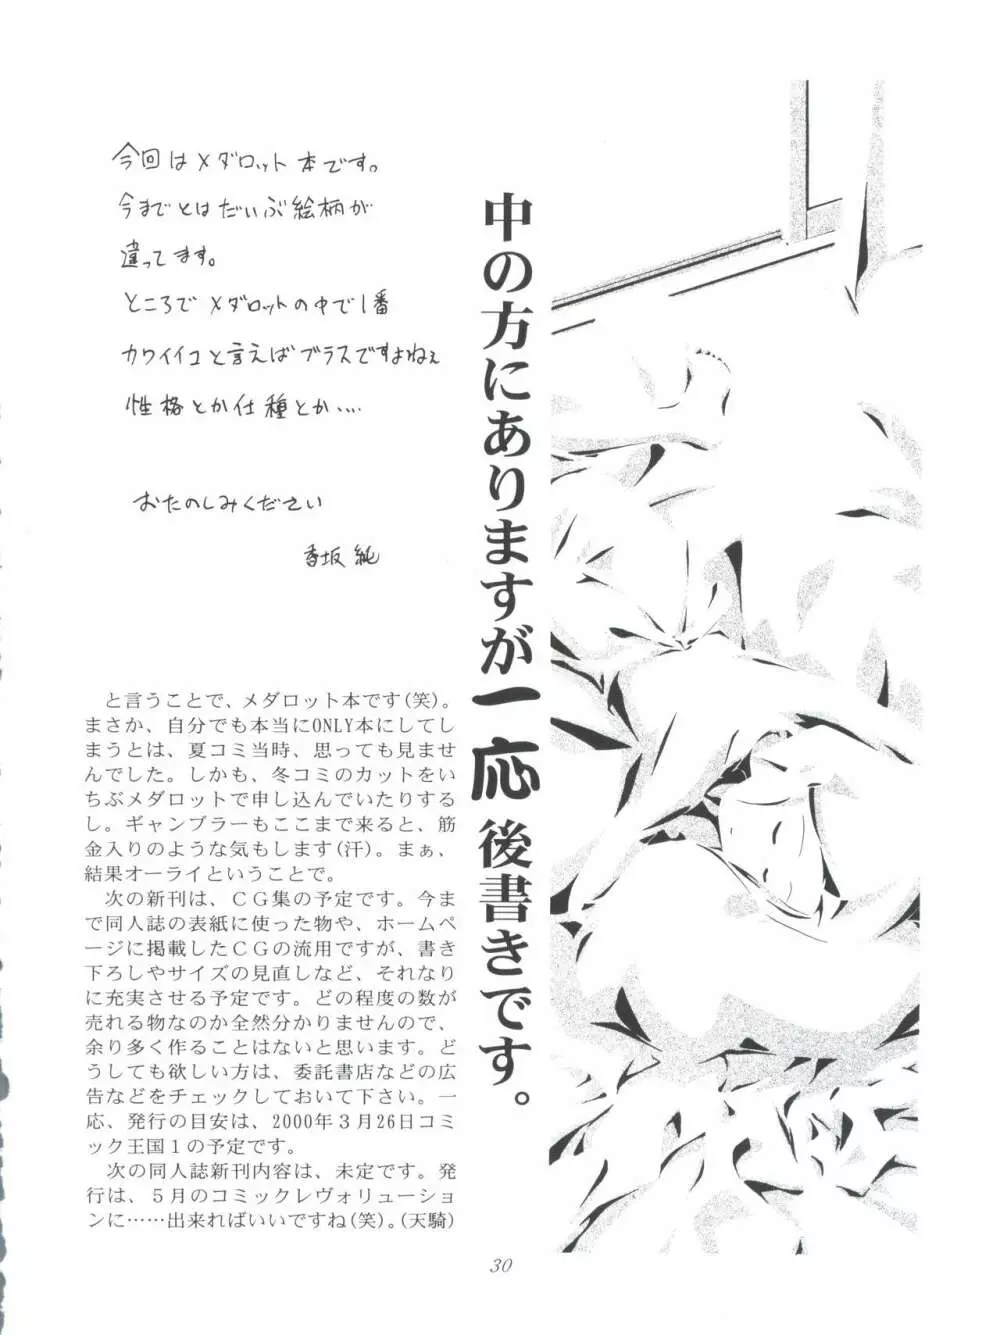 今回はメダロット本です。
今までとはだいぶ絵柄が
違ってます。
ところでメダロットの中で1番
カワイイコと言えばブラスですよねぇ
性格とか仕種とか....
おたのしみください
香坂 純
中の方にありますが一応後書きです。
と言うことで、メダロット本です(笑)。
まさか、自分でも本当にONLY本にしてし
まうとは、夏コミ当時、思っても見ませ
んでした。しかも、冬コミのカットをい
ちぶメダロットで申し込んでいたりする
し。ギャンブラーもここまで来ると、筋
金入りのような気もします(汗)。まぁ、
結果オーライということで。
次の新刊は、ＣＧ集の予定です。今ま
で同人誌の表紙に使った物や、ホームペ
ージに掲載したＣＧの流用ですが、書き
下ろしやサイズの見直しなど、それなり
に充実させる予定です。どの程度の数が
売れる物なのか全然分かりませんので、
余り多く作ることはないと思います。ど
うしても欲しい方は、委託書店などの広
告などをチェックしておいて下さい。一
応、発行の目安は、2000年３月26日コミ
ック王国１の予定です。
次の同人誌新刊内容は、未定です。発
行は、５月のコミックレヴォリューショ
ンに……出来ればいいですね(笑)。(天騎)
30